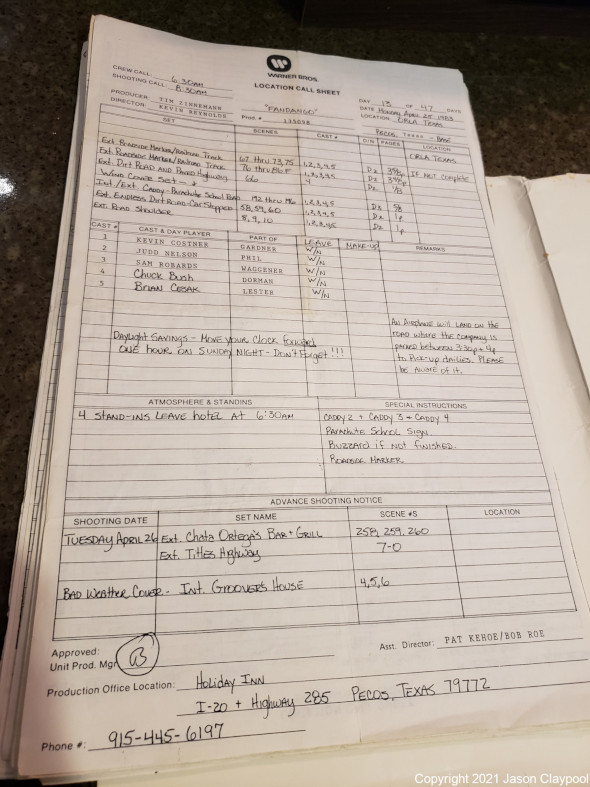 WARNER BROS.
LOCATION CALL SHEET
CREW CALL: 6:30AM
SHOOTING CALL: 8:30AM
DAY 13 OF 47 DAYS
DATE Monday April 25 1983
PRODUCER: TIM ZINNEMANN
DIRECTOR KEVIN REYNOLDS
"FANDANGO"
Prod. #
LOCATION: ORLA TEXAS
PECOS, TEXAS - BASE
SET SCENES CAST # D/N PAGES LOCATION
Ext. Roadside Marker/Railroad Track 67 thru 73,75 1,2,3,4,5 ORLA TEXAS
Ext. Roadside Marker/Railroad Track 76 thru 1,2,3,4,5 IF NOT complete
Ext. Dirt ROAD AND Paved Highway 66 4
Int./Ext. Caddy - Parachute School Road 1,2,3,4,5
Ext. Endless Dirt Road - Car Stopped 58,59,60 1,2,3,4,5
Ext. Road Shoulder 8,9,10 1,2,3,4,5
CAST # CAST & DAY PLAYER PART OF LEAVE MAKE-UP REMARKS
1 KEVIN COSTNER GARDNER W/N
2 JUDD NELSON PHIL W/N
3 SAM ROBARDS WAGGENER W/N
4 Chuck Bush DORMAN W/N
5 BRIAN CESAK LESTER W/N
An Airplane will LAND on the
ROAD where the company is
parked between 3:30p + 4p
to Pick-up dailies. PLEASE
BE AWARE of it.
DAYlight SAVINGS - Move your clock forward
ONE HOUR ON SUNDAY NIGHT - DON'T Forget!!!
ATMOSPHERE & STANDINS SPECIAL INSTRUCTIONS
4 STAND-INS LEAVE hotel AT 6:30AM
CADDY 2 + CADDY 3 + CADDY 4
Parachute School Sign.
Buzzard if NOT finished.
Roadside MARKER
ADVANCE SHOOTING NOTICE
SHOOTING DATE SET NAME SCENE #S LOCATION
TUESDAY APRIL 26 Ext. Chata Ortega's Bar + Grill 258, 259, 260
Ext. Titles Highway 7-0
BAD Weather Cover - Int. Groover's House 4,5,6
Approved:
Unit Prod. Mgr.
Asst. Director: PAT KEHOE/BOB ROE
Production Office Location: Holiday Inn
I-20 + Highway 285 Pecos, Texas 79772
Phone #: 915-445-6197
Copyright 2021 Jason Claypool